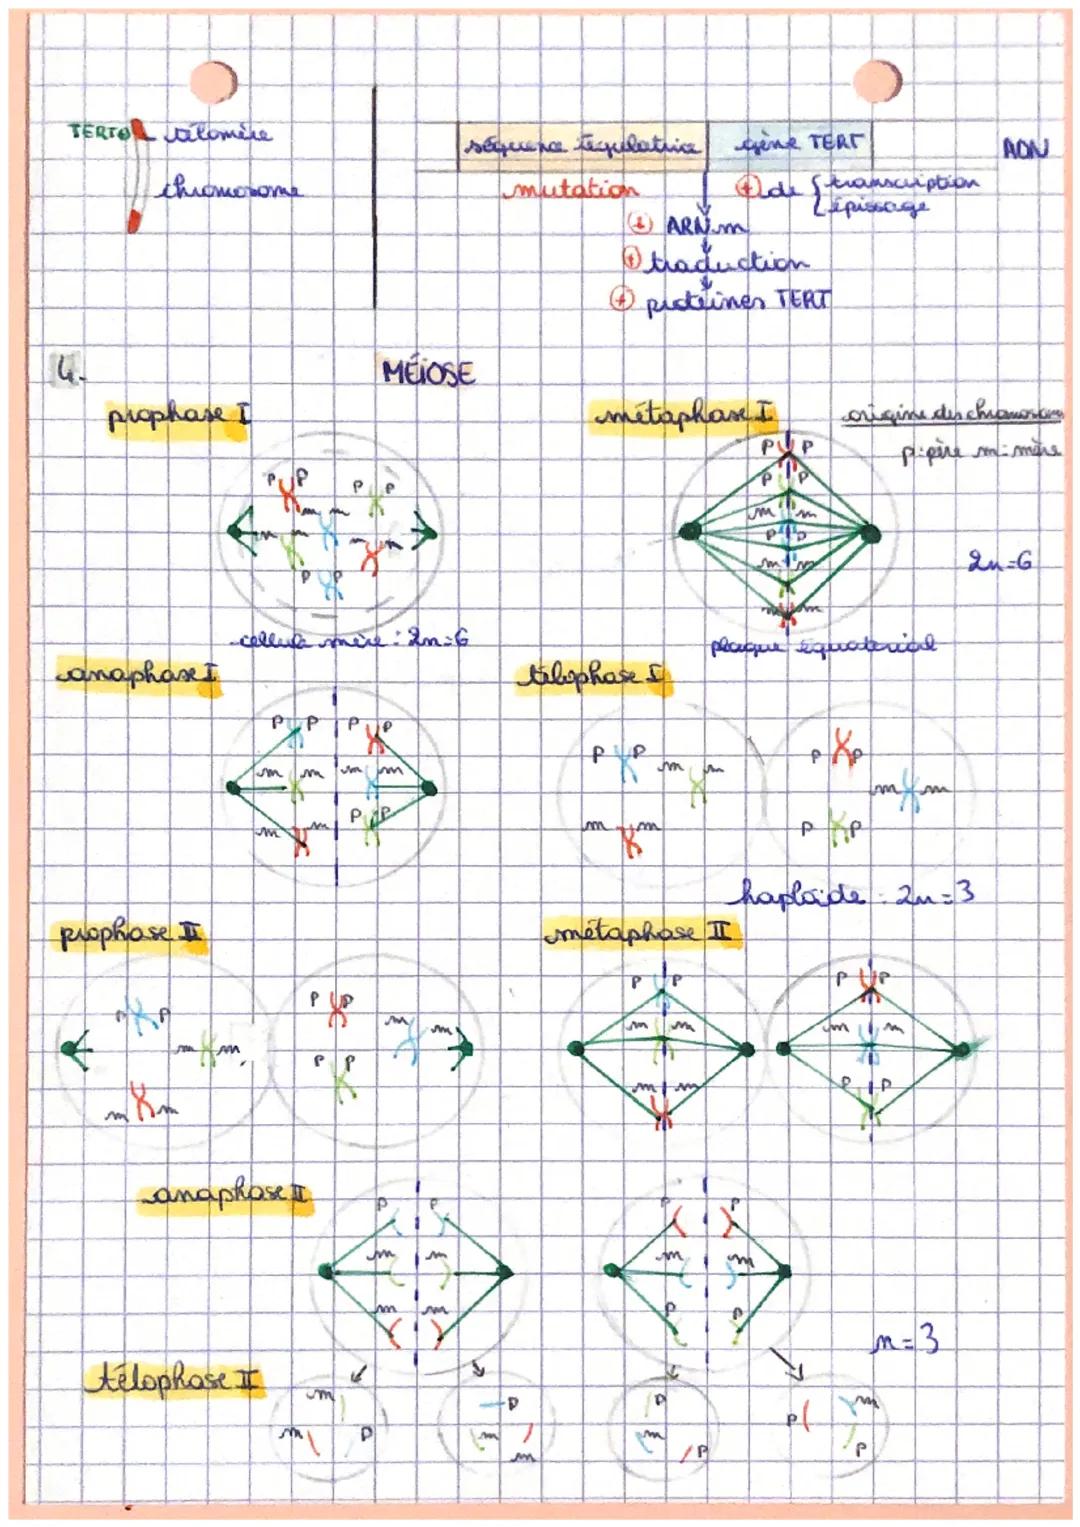 TERT télomère
chromosome
séquence régulatrice gène TERT ADN
mutation
⊕ de { transcription
épissage
⊕ ARNm
⊕ traduction
⊕ protéines TERT
4. MÉIOSE
prophase I
P P
P P
m m
m m
m m
P P
cellule mère : 2n=6
métaphase I
origine des chromosom
p:père m:mère
P P
P P
m m
P P
m m
m m
2n=6
plaque équatorial
anaphase I
P P P P
m m m m
m m P P
télophase I
P P m m
m m
P P
m m
P P
haploïde : 2n=3
prophase II
P P
m m
m m
P P
m m
P P
métaphase II
P P
m m
m m
P P
m m
P P
anaphase II
P P
m m
m m
P P
m m
P P
n=3
télophase II
m
m P
P
m
m
P
m
P
m
P
P